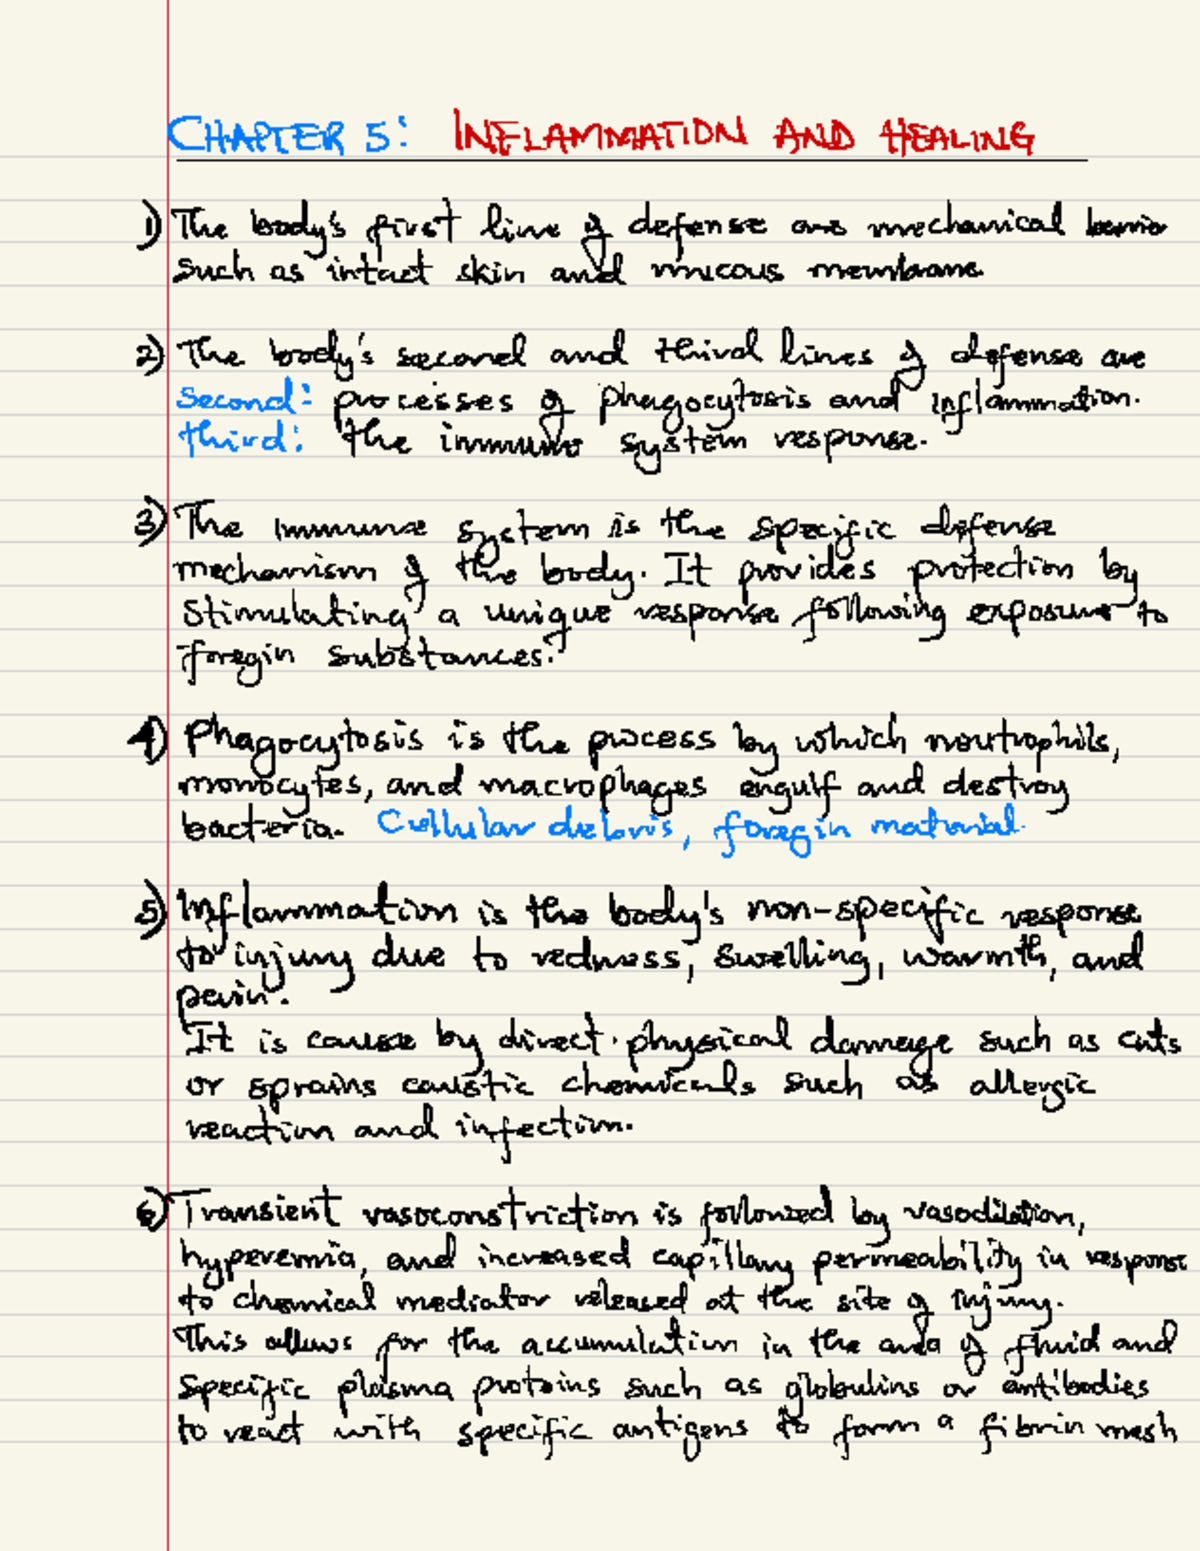 CHAPTER 5: INFLAMMATION AND HEALING
1) The body's first line of defense are mechanical
such as intact skin and mucous membrane
2) The body's second and third lines of defense are
second: processes of phagocytosis and inflammation.
third: the immune system response.
3) The immune system is the specific defense
mechanism of the body. It provides protection by
stimulating a unique response following exposure to
foregin substances.
4) Phagocytosis is the process by which neutrophils,
monocytes, and macrophages engulf and destroy
bacteria. Cellular debris, foregin material.
5) Inflammation is the body's non-specific response
to injury due to redness, swelling, warmth, and
pain.
It is cause by direct physical damage such as cuts
or sprains caustic chemicals such as allergic
reaction and infection.
6) Transient vasoconstriction is followed by vasodilation,
hyperemia, and increased capillary permeability in response
to chemical mediator released at the site of injury.
This allows for the accumulation in the area of fluid and
specific plasma proteins such as globulins or antibodies
to react with specific antigens to form a fibrin mesh